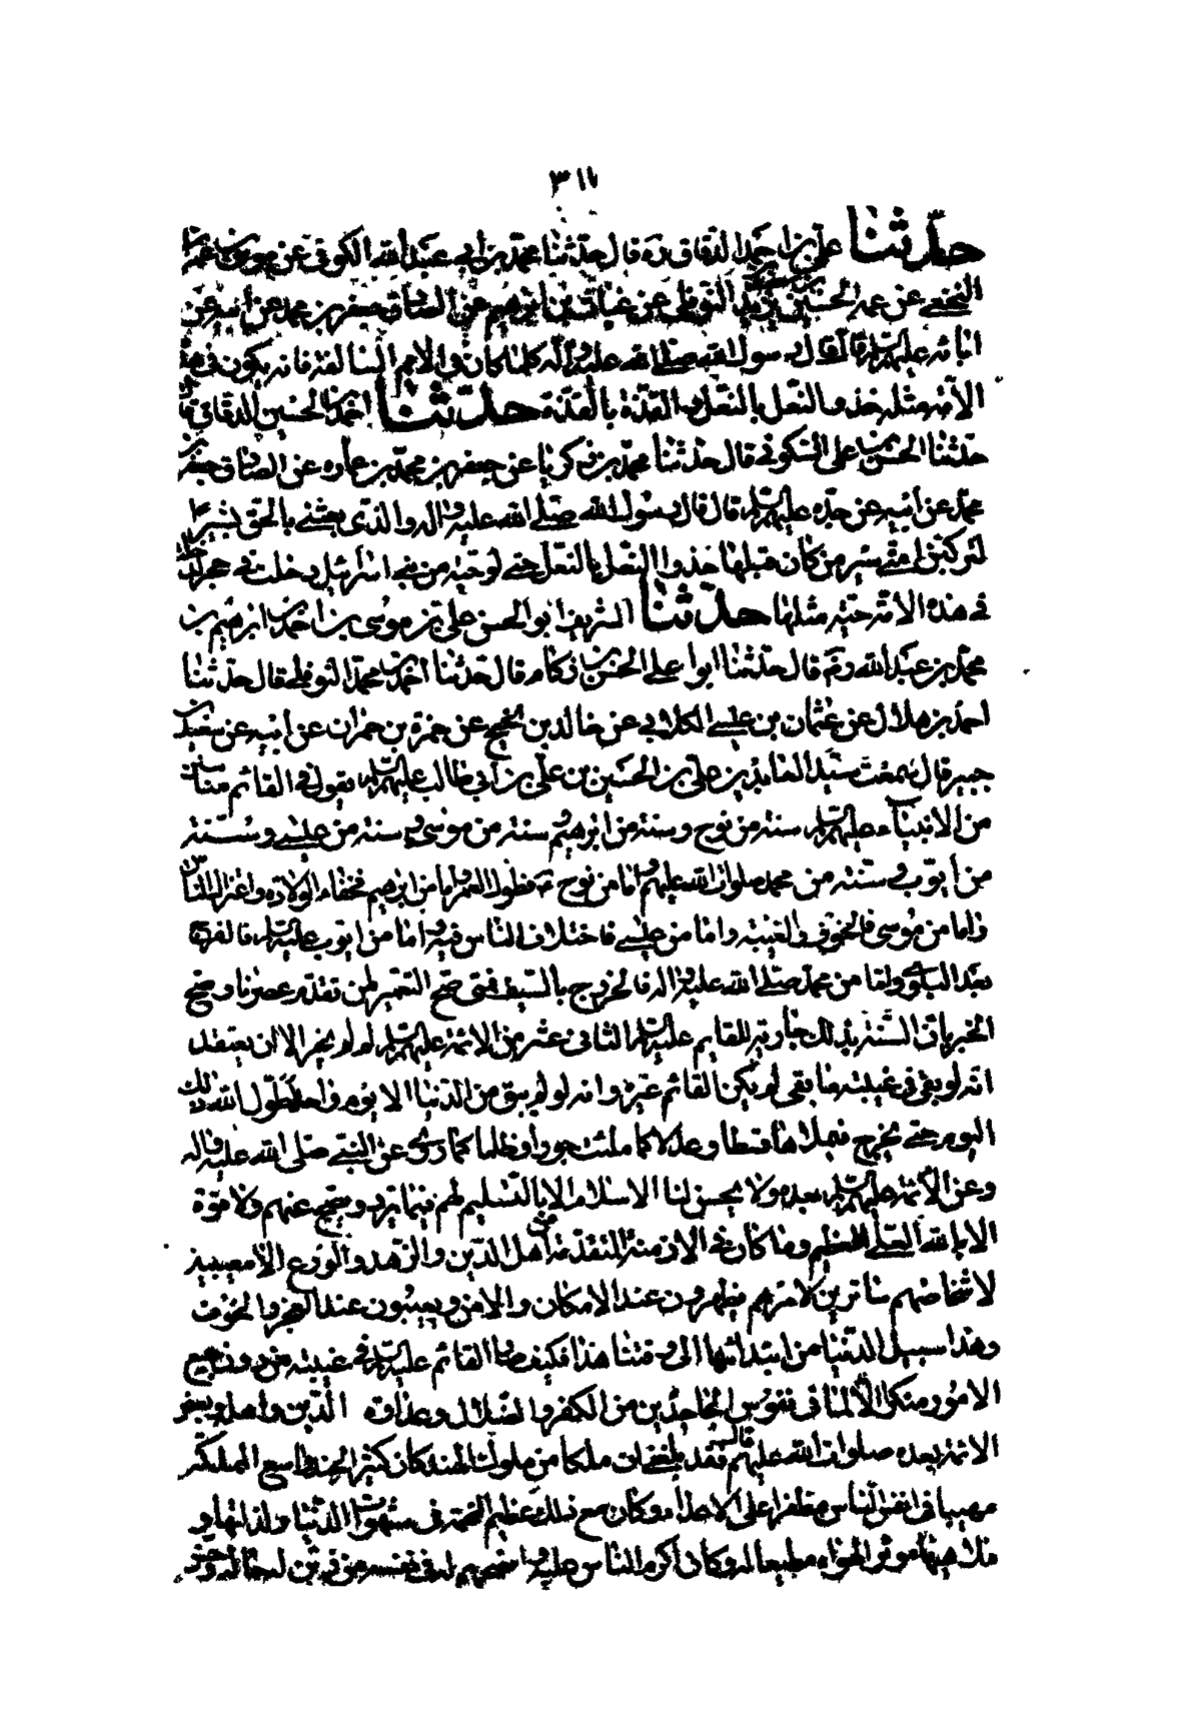 ٣١١
حدثنا علي بن احمد الدقاق ره قال حدثنا محمد بن أبي عبد الله الكوفي عن موسى بن عمران
النخعي عن عمه الحسين بن يزيد النوفلي عن غياث بن ابرهيم عن الصادق جعفر بن محمد عن ابيه عن
ابائه عليهم السلام قال قال رسول الله صلى الله عليه وآله كلما كان في الامم السالفة فانه يكون في هذه
الأمة مثله حذو النعل بالنعل والقذة بالقذة حدثنا احمد بن الحسين الدقاق قال
حدثنا الحسن بن علي السكوني قال حدثنا محمد بن زكريا عن جعفر بن محمد بن عماره عن الصادق جعفر بن
محمد عن أبيه عن جده عليهم السلام قال قال رسول الله صلى الله عليه واله والذي بعثني بالحق بشيرا
لتركبن امتي سنن من كان قبلها حذوا النعل بالنعل حتى لو حية من بني اسرائيل دخلت في جحر لدخلت
في هذه الامة حية مثلها حدثنا الشريف ابو الحسن علي بن موسى بن احمد بن ابرهيم بن
محمد بن عبد الله ره قال حدثنا ابوا علي الحسن بن ركام قال حدثنا أحمد بن محمد النوفلي قال حدثنا
احمد بن هلال عن عثمان بن عيسى الكلابي عن خالد بن نجيح عن حمزة بن حمران عن ابيه عن سعيد بن
جبير قال سمعت سيد العابدين علي بن الحسين بن علي بن أبي طالب عليهم السلام يقول في القائم منا سنن
من الانبياء عليهم السلام سنة من نوح وسنة من ابرهيم سنة من موسى وسنة من عيسى وسنة
من أيوب وسنة من محمد صلوات الله عليهم واما من نوح ع فطول العمر واما من ابرهيم فخفاء الولادة واعتزال الناس
واما من موسى فالخوف والغيبة واما من عيسى فاختلاف الناس فيه واما من ايوب عليه السلام فالفرج
بعد البلوى واما من محمد صلى الله عليه واله فالخروج بالسيف فمتى صح التعمير لمن تقدم عصرنا وصح
الخبر بان السنة بذلك جارية للقايم عليه السلام الثاني عشر من الائمة عليهم السلام لم يجز الا ان يعتقد
انه لو بقي في غيبته ما بقي لم يكن القائم غيره وانه لو لم يبق من الدنيا الا يوم واحد لطول الله ذلك
اليوم حتى يخرج فيملاها قسطا وعدلا كما ملئت جورا وظلما كما روي عن النبي صلى الله عليه واله
وعن الأئمة عليهم السلام بعده ولا يحسن لنا الاسلام الا بالتسليم لهم فيما يرد ويصح عنهم ولا قوة
الا بالله العلي العظيم وما كان في الازمنة المتقدمة من أهل الدين والزهد والورع الا مغيبين
لاشخاصهم ساترين لامرهم يظهرون عند الامكان والامن ويغيبون عند العجز والخوف
وهذا سبيل الدنيا من ابتدائها الى وقتنا هذا فكيف صار القائم عليه السلام في غيبته من دون جميع
الامور منكرا الا لما في نفوس الجاحدين من الكفر والضلال وعداوة الدين وأهله وبغض
الائمة بعده صلوات الله عليهم فقد بلغني ان ملكا من ملوك الهند كان كثير الجند واسع المملكة
مهيبا في انفس الناس مظفرا على الاعداء وكان مع ذلك عظيم النهمة في شهوات الدنيا ولذاتها و
ملاهيها موثرا لهواه مطيعا له وكان اكرم الناس عليه وانصحهم له في نفسه من زين له حاله وحسن